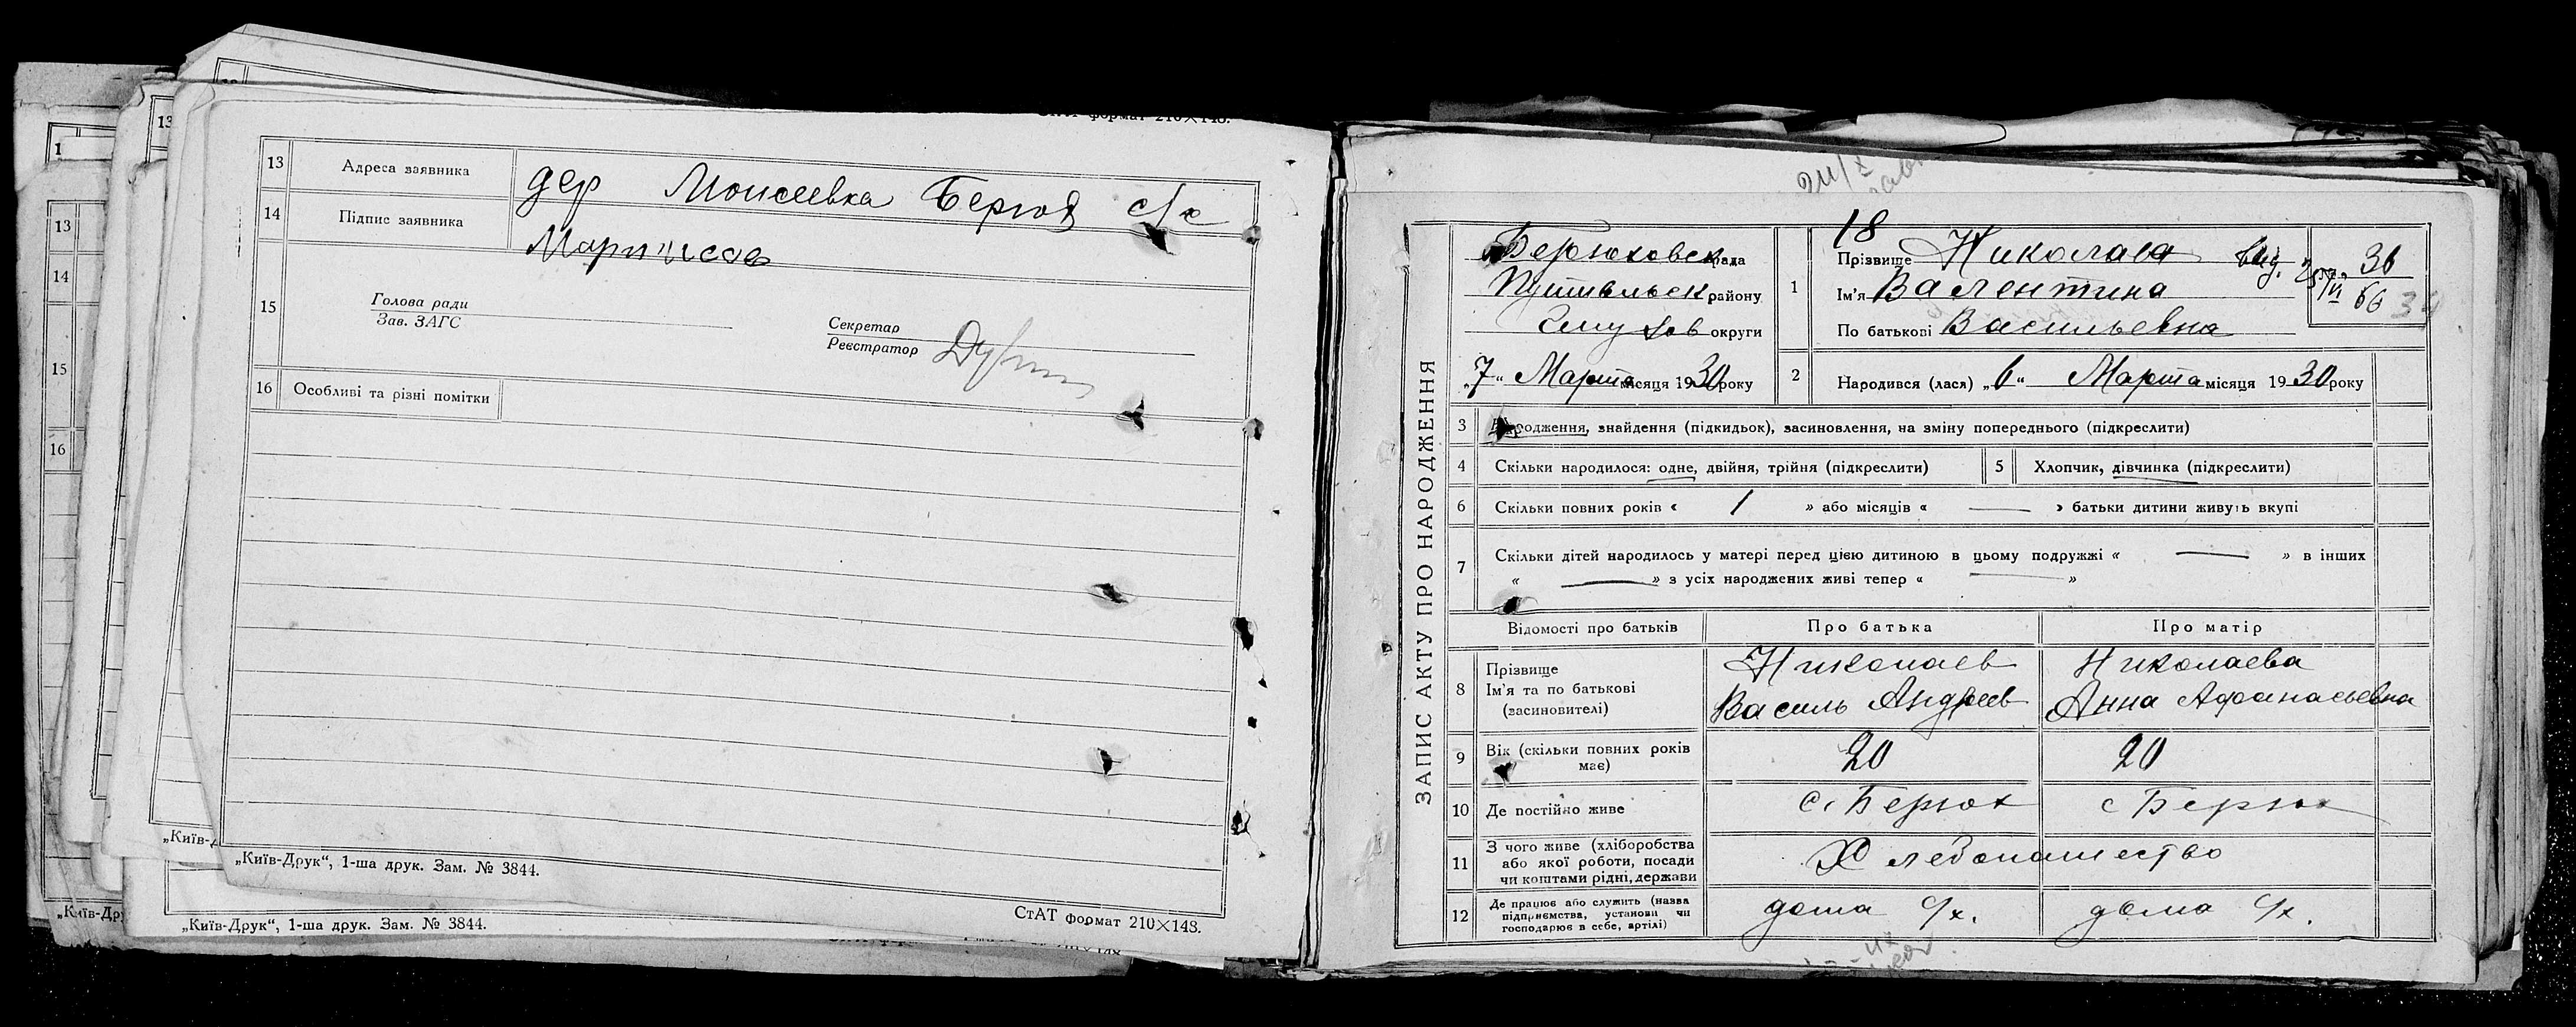 13 Адреса заявника дер Моисеевка Берюх с/с
14 Підпис заявника
15 Голова ради
Зав. ЗАГС
Секретар
Реєстратор
16 Особливі та різні помітки
„Київ-Друк“, 1-ша друк. Зам. № 3844.
СтАТ формат 210×148.
„Київ-Друк“, 1-ша друк. Зам. № 3844.
13
14
15
16
ЗАПИС АКТУ ПРО НАРОДЖЕННЯ
18
Берюховск рада
Путивльск району
округи
„7“ Марта місяця 1930 року
1 Прізвище Николаева
Ім'я Валентина
По батькові Васильевна
36
66
2 Народився (лася) „6“ Марта місяця 1930 року
3 Народження, знайдення (підкидьок), засиновлення, на зміну попереднього (підкреслити)
4 Скільки народилося: одне, двійня, трійня (підкреслити)
5 Хлопчик, дівчинка (підкреслити)
6 Скільки повних років « 1 » або місяців « — » батьки дитини живуть вкупі
7 Скільки дітей народилось у матері перед цією дитиною в цьому подружжі « — » в інших
« — » з усіх народжених живі тепер « — »
Відомості про батьків Про батька Про матір
8 Прізвище Николаев Николаева
Ім'я та по батькові Василь Андреев Анна Афанасьевна
(засновителі)
9 Вік (скільки повних років 20 20
має)
10 Де постійно живе с. Берюх с Берюх
11 З чого живе (хліборобства Хлебопашество
або якої роботи, посади
чи коштами рідні, держави
12 Де працює або служить (назва дома с/х. дома с/х.
підприємства, установи чи
господарює в себе, артілі)